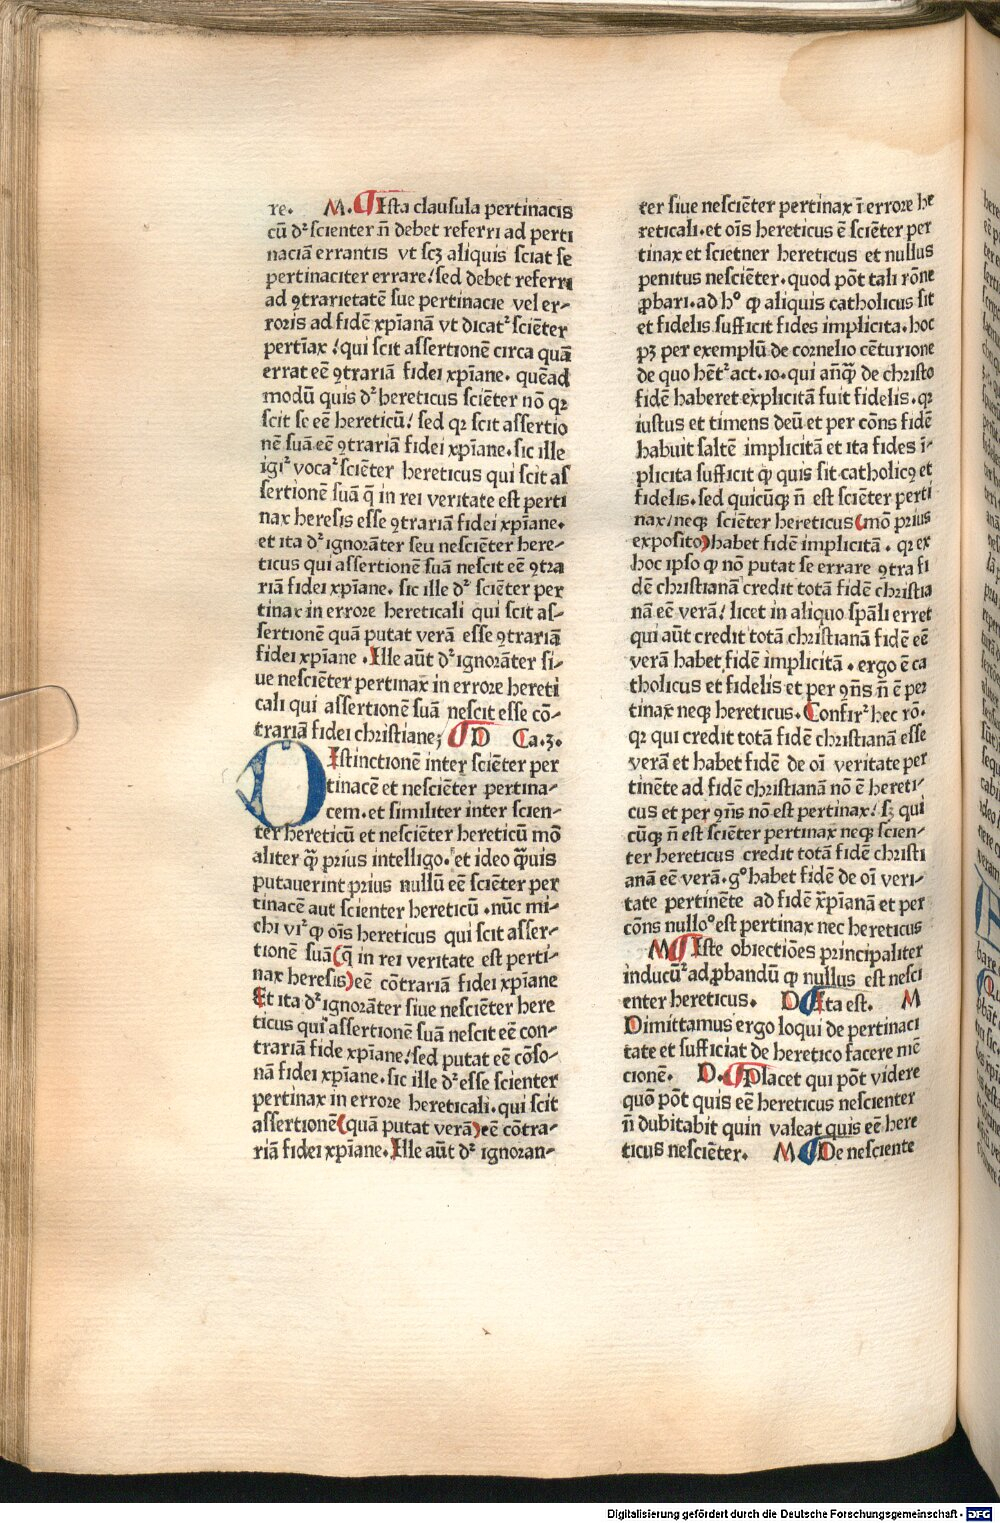 re. M. Ista clausula pertinacis
cū dꝛ scienter n̄ debet referri ad perti
naciā errantis vt scꝫ aliquis sciat se
pertinaciter errare/ sed debet referri
ad ꝯtrarietatē sue pertinacie vel er-
roris ad fidē xp̄ianā vt dicatꝛ sciēter
pertīax / qui scit assertionē circa quā
errat eē ꝯtrariā fidei xp̄iane. quēad
modū quis dꝛ hereticus sciēter nō qꝛ
scit se eē hereticū/ sed qꝛ scit assertio
nē suā eē ꝯtrariā fidei xp̄iane. sic ille
igiꝛ vocaꝛ sciēter hereticus qui scit as
sertionē suā q̄ in rei veritate est perti
nax heresis esse ꝯtrariā fidei xp̄iane.
et ita dꝛ ignorāter seu nesciēter here-
ticus qui assertionē suā nescit eē ꝯtra
riā fidei xp̄iane. sic ille dꝛ sciēter per
tinax in errore hereticali qui scit as-
sertionē quā putat verā esse ꝯtrariā
fidei xp̄iane . Ille aūt dꝛ ignorāter si-
ue nesciēter pertinax in errore hereti
cali qui assertionē suā nescit esse cō-
trariā fidei christiane; D Ca.3.
DIstinctionē inter sciēter per
tinacē et nesciēter pertina-
cem. et similiter inter scien-
ter hereticū et nesciēter hereticū mō
aliter q̄ꝫ prius intelligo. et ideo q̄ꝫuis
putauerint prius nullū eē sciēter per
tinacē aut scienter hereticū . nūc mi-
chi viꝛ ꝙ oīs hereticus qui scit asser-
tionē suā (q̄ in rei veritate est perti-
nax heresis) eē cōtrariā fidei xp̄iane
Et ita dꝛ ignorāter siue nesciēter here
ticus qui assertionē suā nescit eē con-
trariā fide xp̄iane/ sed putat eē cōso-
nā fidei xp̄iane. sic ille dꝛ esse scienter
pertinax in errore hereticali. qui scit
assertionē (quā putat verā) eē cōtra-
riā fidei xp̄iane. Ille aūt dꝛ ignoran-
ter siue nesciēter pertinax ī errore he
reticali. et oīs hereticus ē sciēter per
tinax et scietner hereticus et nullus
penitus nesciēter. quod pōt tali rōne
ꝓbari. ad hͦ ꝙ aliquis catholicus sit
et fidelis sufficit fides implicita. hoc
pꝫ per exemplū de cornelio cēturione
de quo hētꝛ act. 10. qui anq̄ꝫ de christo
fidē haberet explicitā fuit fidelis. qꝛ
iustus et timens deū et per cōns fidē
habuit saltē implicitā et ita fides ī-
plicita sufficit ꝙ quis sit catholicꝯ et
fidelis. sed quicūqꝫ n̄ est sciēter perti
nax/ neqꝫ sciēter hereticus (mō prius
exposito) habet fidē implicitā . qꝛ ex
hoc ipso ꝙ nō putat se errare ꝯtra fi
dē christianā credit totā fidē christia
nā eē verā/ licet in aliquo spāli erret
qui aūt credit totā christianā fidē eē
verā habet fidē implicitā . ergo ē ca
tholicus et fidelis et per ꝯn̄s n̄ ē per
tinax neqꝫ hereticus. Confirꝛ hec rō.
qꝛ qui credit totā fidē christianā esse
verā et habet fidē de oī veritate per
tinēte ad fidē christianā nō ē hereti-
cus et per ꝯn̄s nō est pertinax/ sꝫ qui
cūqꝫ n̄ est sciēter pertinax neqꝫ scien-
ter hereticus credit totā fidē christi
anā eē verā. gͦ habet fidē de oī veri-
tate pertinēte ad fidē xp̄ianā et per
cōns nulloͦ est pertinax nec hereticus
M Iste obiectiōes principaliter
inducūꝛ ad ꝓbandū ꝙ nullus est nesci
enter hereticus. D Ita est. M
Dimittamus ergo loqui de pertinaci
tate et sufficiat de heretico facere mē
cionē. D. Placet qui pōt videre
quō pōt quis eē hereticus nescienter
n̄ dubitabit quin valeat quis eē here
ticus nesciēter. M. De nesciente
Digitalisierung gefördert durch die Deutsche Forschungsgemeinschaft - DFG